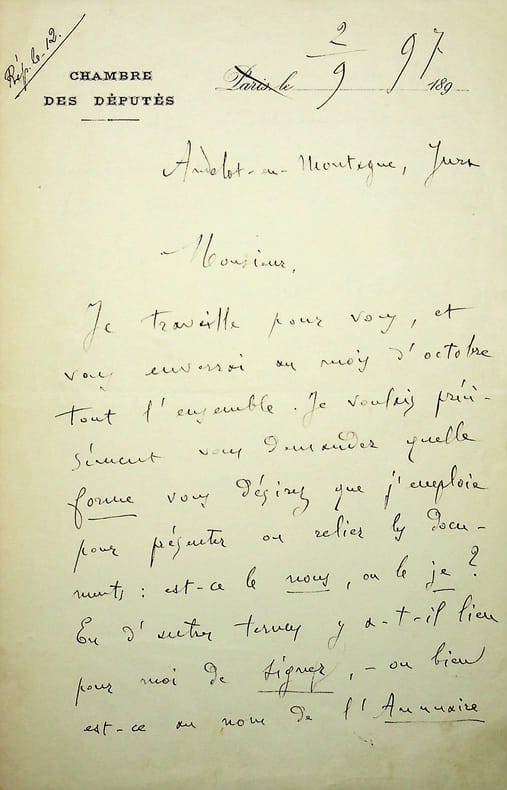 Rép. le 12.
CHAMBRE
DES DÉPUTÉS
Paris, le 2/9 97 189
Andelot-en-Montagne, Jura
Monsieur,
Je travaille pour vous, et
vous enverrai au mois d'octobre
tout l'ensemble. Je voulais préci-
sément vous demander quelle
forme vous désirez que j'emploie
pour présenter ou relier les docu-
ments : est-ce le nous, ou le je ?
En d'autres termes y a-t-il lieu
pour moi de signer, - ou bien
est-ce au nom de l'Annuaire